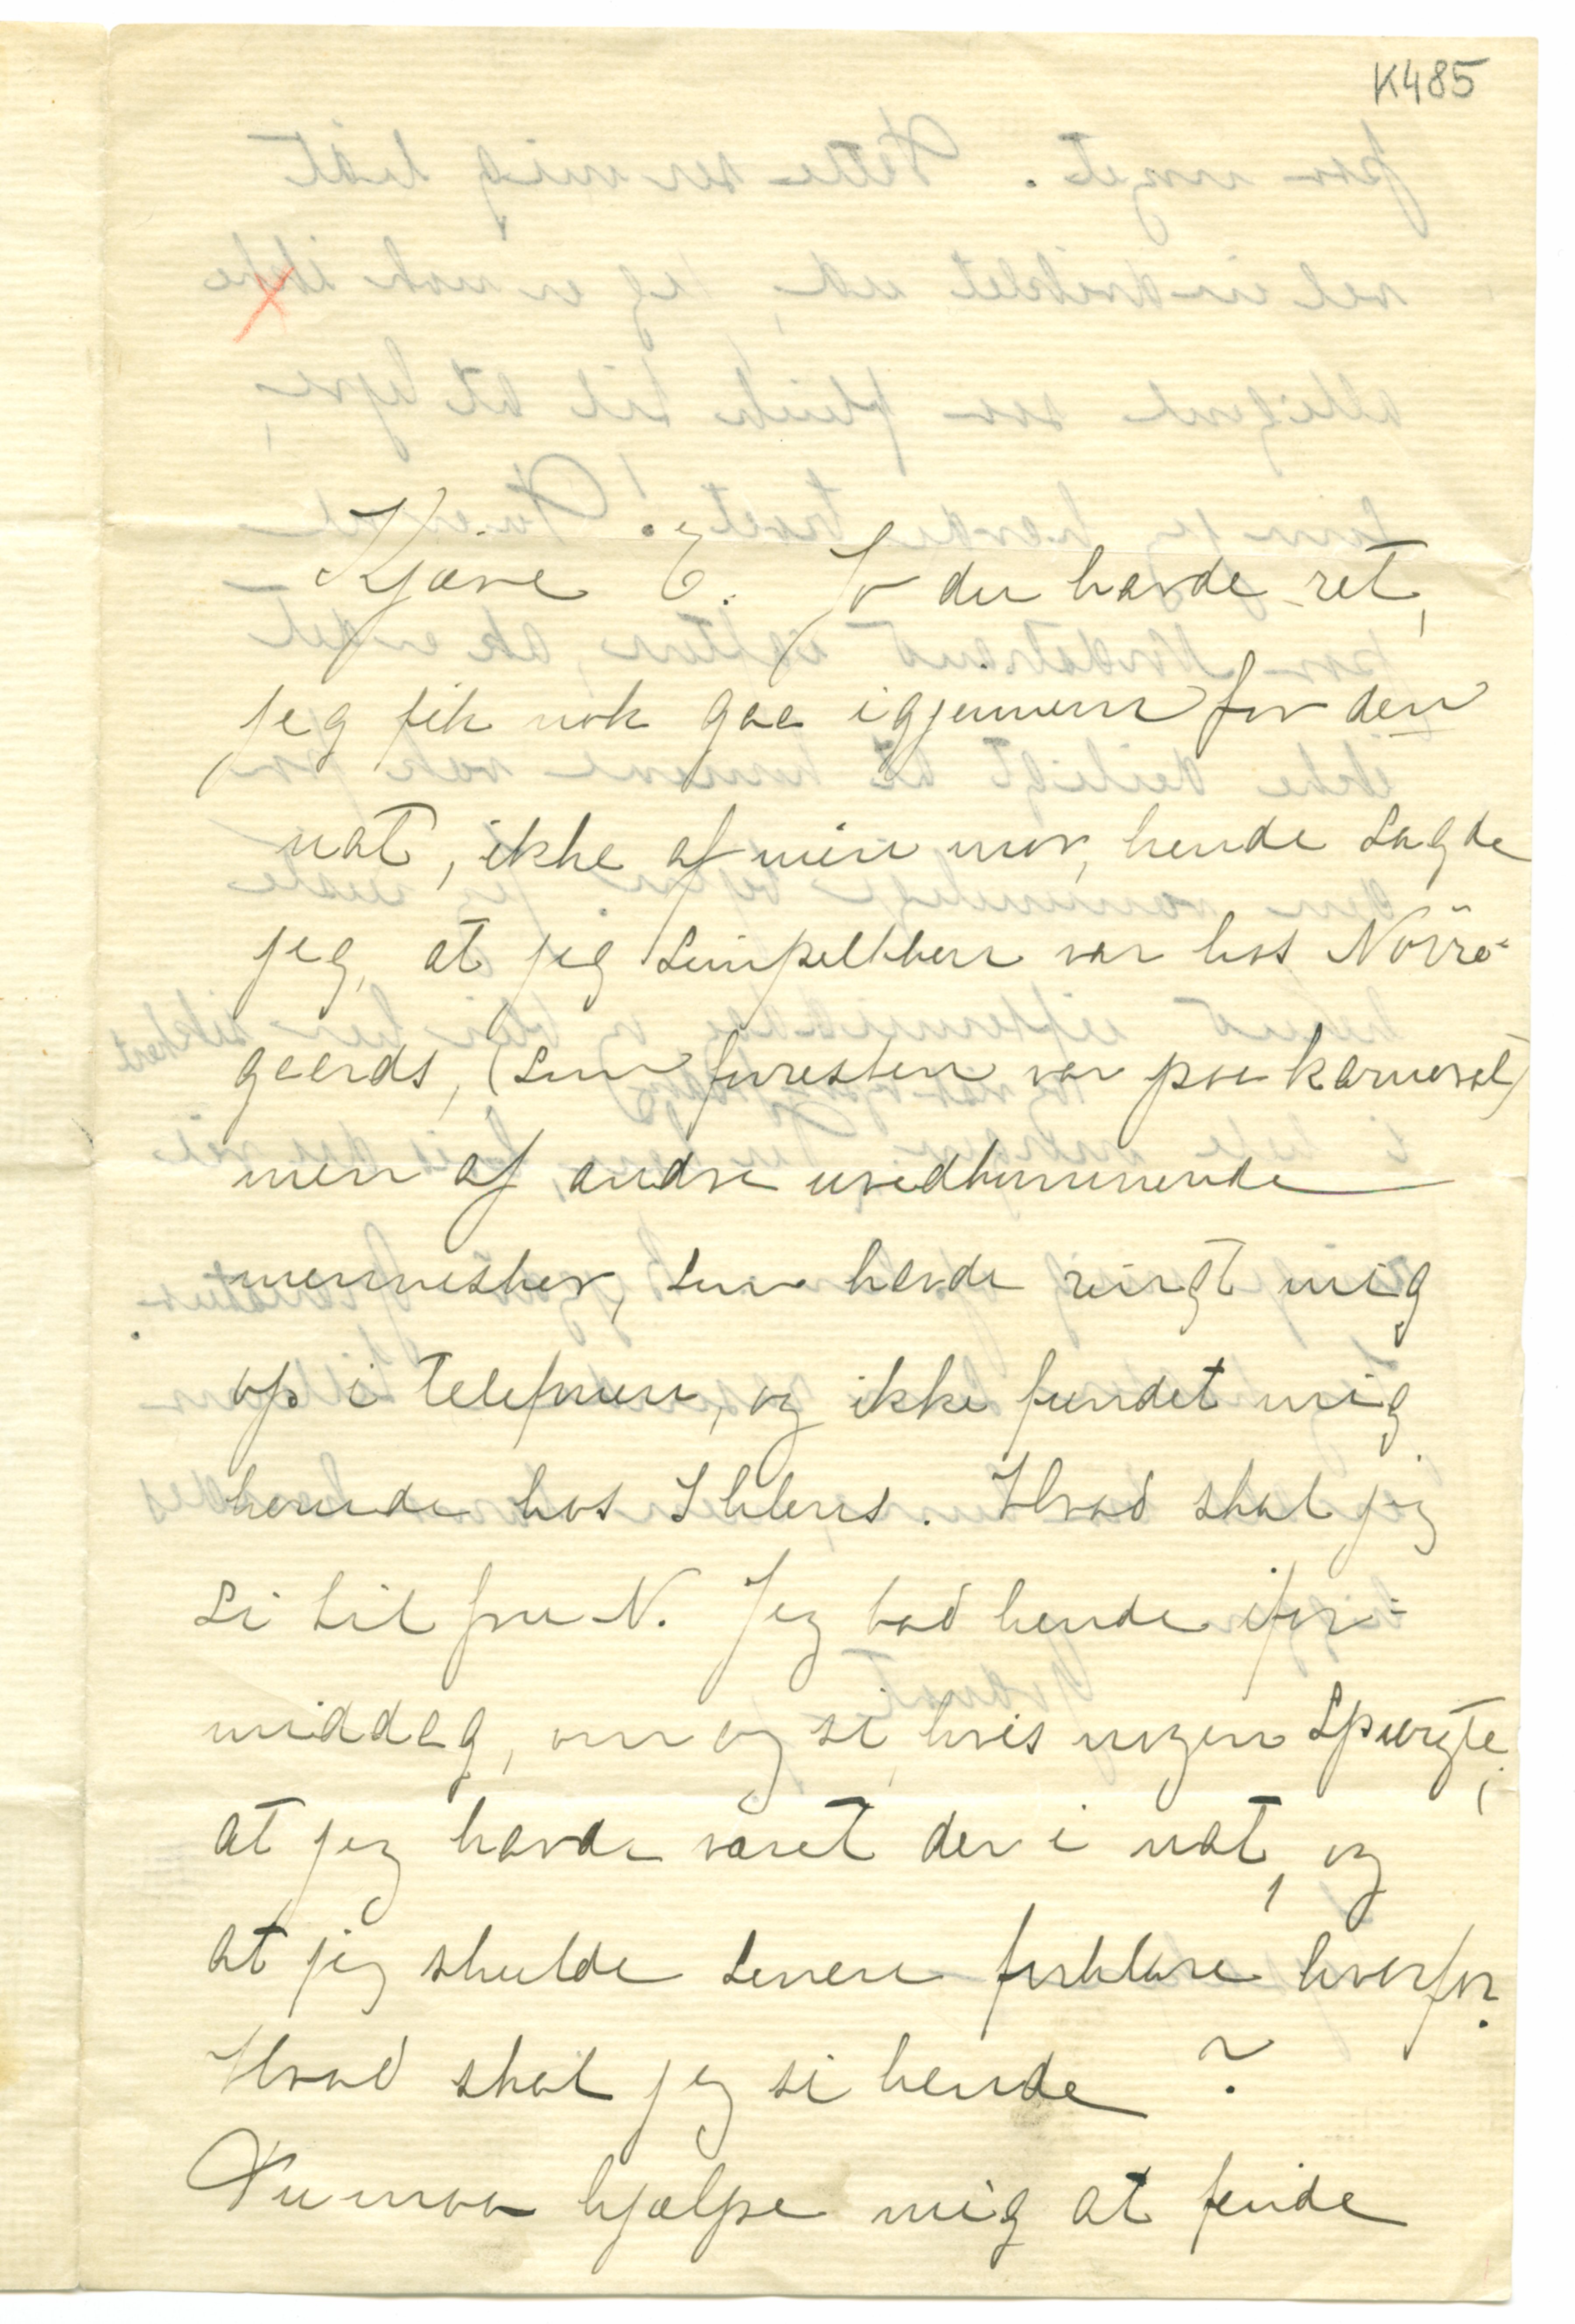 K485
Kjære E. Jo du havde ret,
jeg fik nok gaa igjennem for den
nat, ikke af min mor, hende sagde
jeg, at jeg simpelthen var hos Nörre-
gaards, (som foresten var paa karneval)
men af andre uvedkommende
mennesker, som havde ringt mig
op i telefonen, og ikke fundet mig
herude hos Ihlens. Hvad skal jeg
si til fru N. Jeg bad hende ifor-
middag, om og si, hvis nogen spurgte,
at jeg havde været der i nat, og
at jeg skulde senere forklare hvorfor.
Hvad skal jeg si hende ?
Du maa hjælpe mig at finde